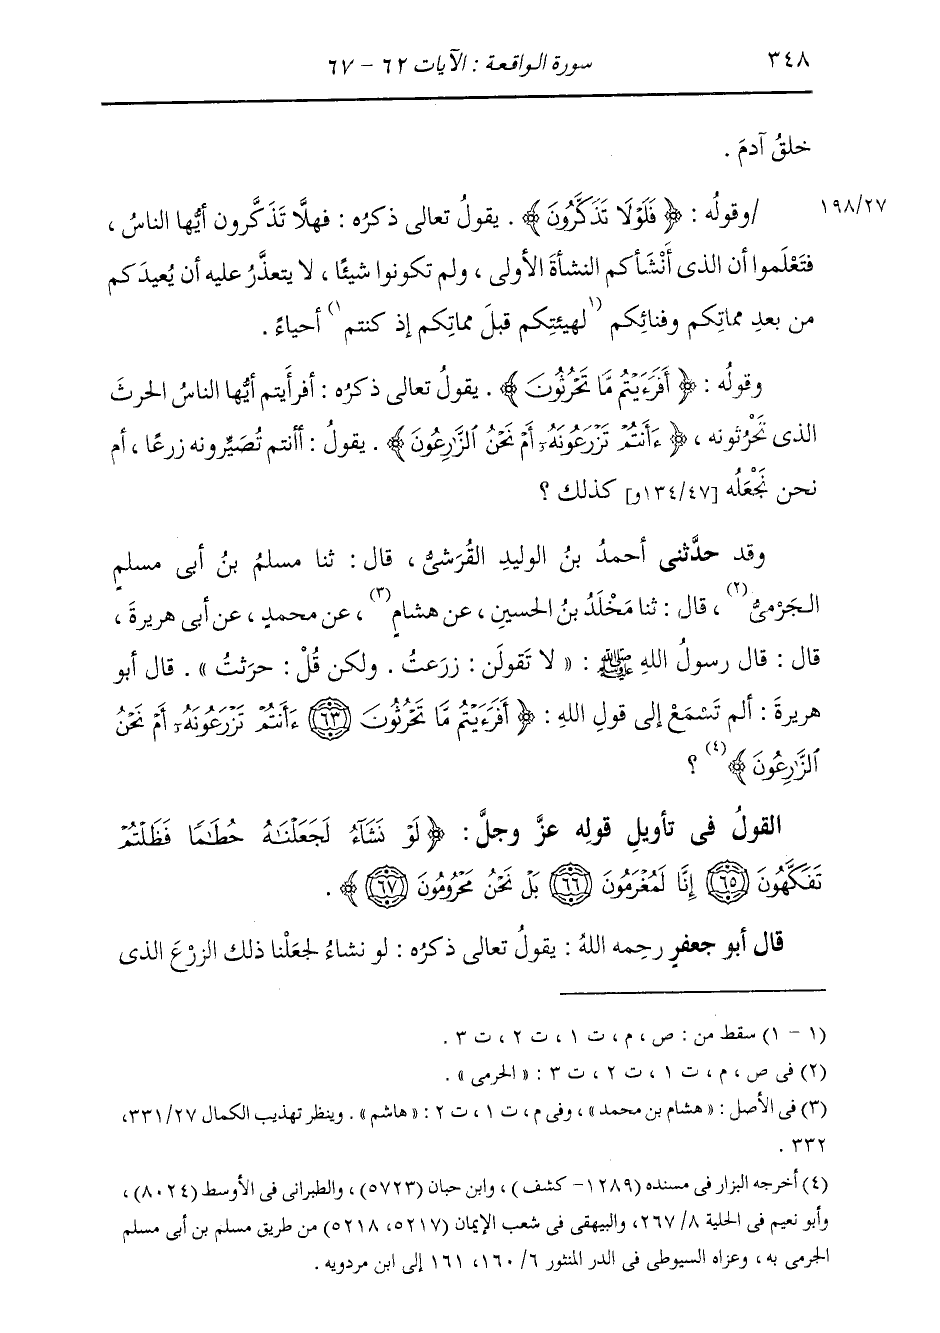 ٣٤٨ سورة الواقعة : الآيات ٦٢ - ٦٧
خلقُ آدمَ .
١٩٨/٢٧ /وقولُه : ﴿ فَلَوْلَا تَذَكَّرُونَ ﴾ . يقولُ تعالى ذكرُه : فهلَّا تَذَكَّرون أيُّها الناسُ ،
فتَعْلَموا أن الذى أَنْشَأكم النشأةَ الأولى ، ولم تكونوا شيئًا ، لا يتعذَّرُ عليه أن يُعيدَكم
من بعدِ مماتِكم وفنائِكم (١لهيئتِكم قبلَ مماتِكم إذ كنتم١) أحياءً .
وقولُه : ﴿ أَفَرَءَيْتُم مَّا تَحْرُثُونَ ﴾ . يقولُ تعالى ذكرُه : أفرأَيتم أيُّها الناسُ الحرثَ
الذى تَحْرُثونه ، ﴿ ءَأَنتُمْ تَزْرَعُونَهُۥٓ أَمْ نَحْنُ ٱلزَّٰرِعُونَ ﴾ . يقولُ : أأنتم تُصَيِّرونه زرعًا ، أم
نحن نَجْعَلُه [١٣٤/٤٧و] كذلك ؟
وقد حدَّثنى أحمدُ بنُ الوليدِ القُرَشىُّ ، قال : ثنا مسلمُ بنُ أبى مسلمٍ
الجَرْمىُّ(٢) ، قال : ثنا مَخْلَدُ بنُ الحسينِ ، عن هشامٍ(٣) ، عن محمدٍ ، عن أبى هريرةَ ،
قال : قال رسولُ اللهِ ﷺ : « لا تَقولَن : زرَعتُ . ولكن قُلْ : حرَثتُ » . قال أبو
هريرةَ : ألم تَسْمَعْ إلى قولِ اللهِ : ﴿ أَفَرَءَيْتُم مَّا تَحْرُثُونَ ﴿٦٣﴾ ءَأَنتُمْ تَزْرَعُونَهُۥٓ أَمْ نَحْنُ
ٱلزَّٰرِعُونَ ﴾(٤) ؟
القولُ فى تأويلِ قولِه عزَّ وجلَّ : ﴿ لَوْ نَشَآءُ لَجَعَلْنَٰهُ حُطَٰمًا فَظَلْتُمْ
تَفَكَّهُونَ ﴿٦٥﴾ إِنَّا لَمُغْرَمُونَ ﴿٦٦﴾ بَلْ نَحْنُ مَحْرُومُونَ ﴿٦٧﴾ ﴾ .
قال أبو جعفرٍ رحِمه اللهُ : يقولُ تعالى ذكرُه : لو نشاءُ لجعَلْنا ذلك الزرْعَ الذى
(١ - ١) سقط من : ص ، م ، ت ١ ، ت ٢ ، ت ٣ .
(٢) فى ص ، م ، ت ١ ، ت ٢ ، ت ٣ : « الحرمى » .
(٣) فى الأصل : « هشام بن محمد » ، وفى م ، ت ١ ، ت ٢ : « هاشم » . وينظر تهذيب الكمال ٣٣١/٢٧،
٣٣٢ .
(٤) أخرجه البزار فى مسنده (١٢٨٩- كشف) ، وابن حبان (٥٧٢٣) ، والطبرانى فى الأوسط (٨٠٢٤) ،
وأبو نعيم فى الحلية ٢٦٧/٨، والبيهقى فى شعب الإيمان (٥٢١٧، ٥٢١٨) من طريق مسلم بن أبى مسلم
الجرمى به ، وعزاه السيوطى فى الدر المنثور ١٦٠/٦، ١٦١ إلى ابن مردويه .